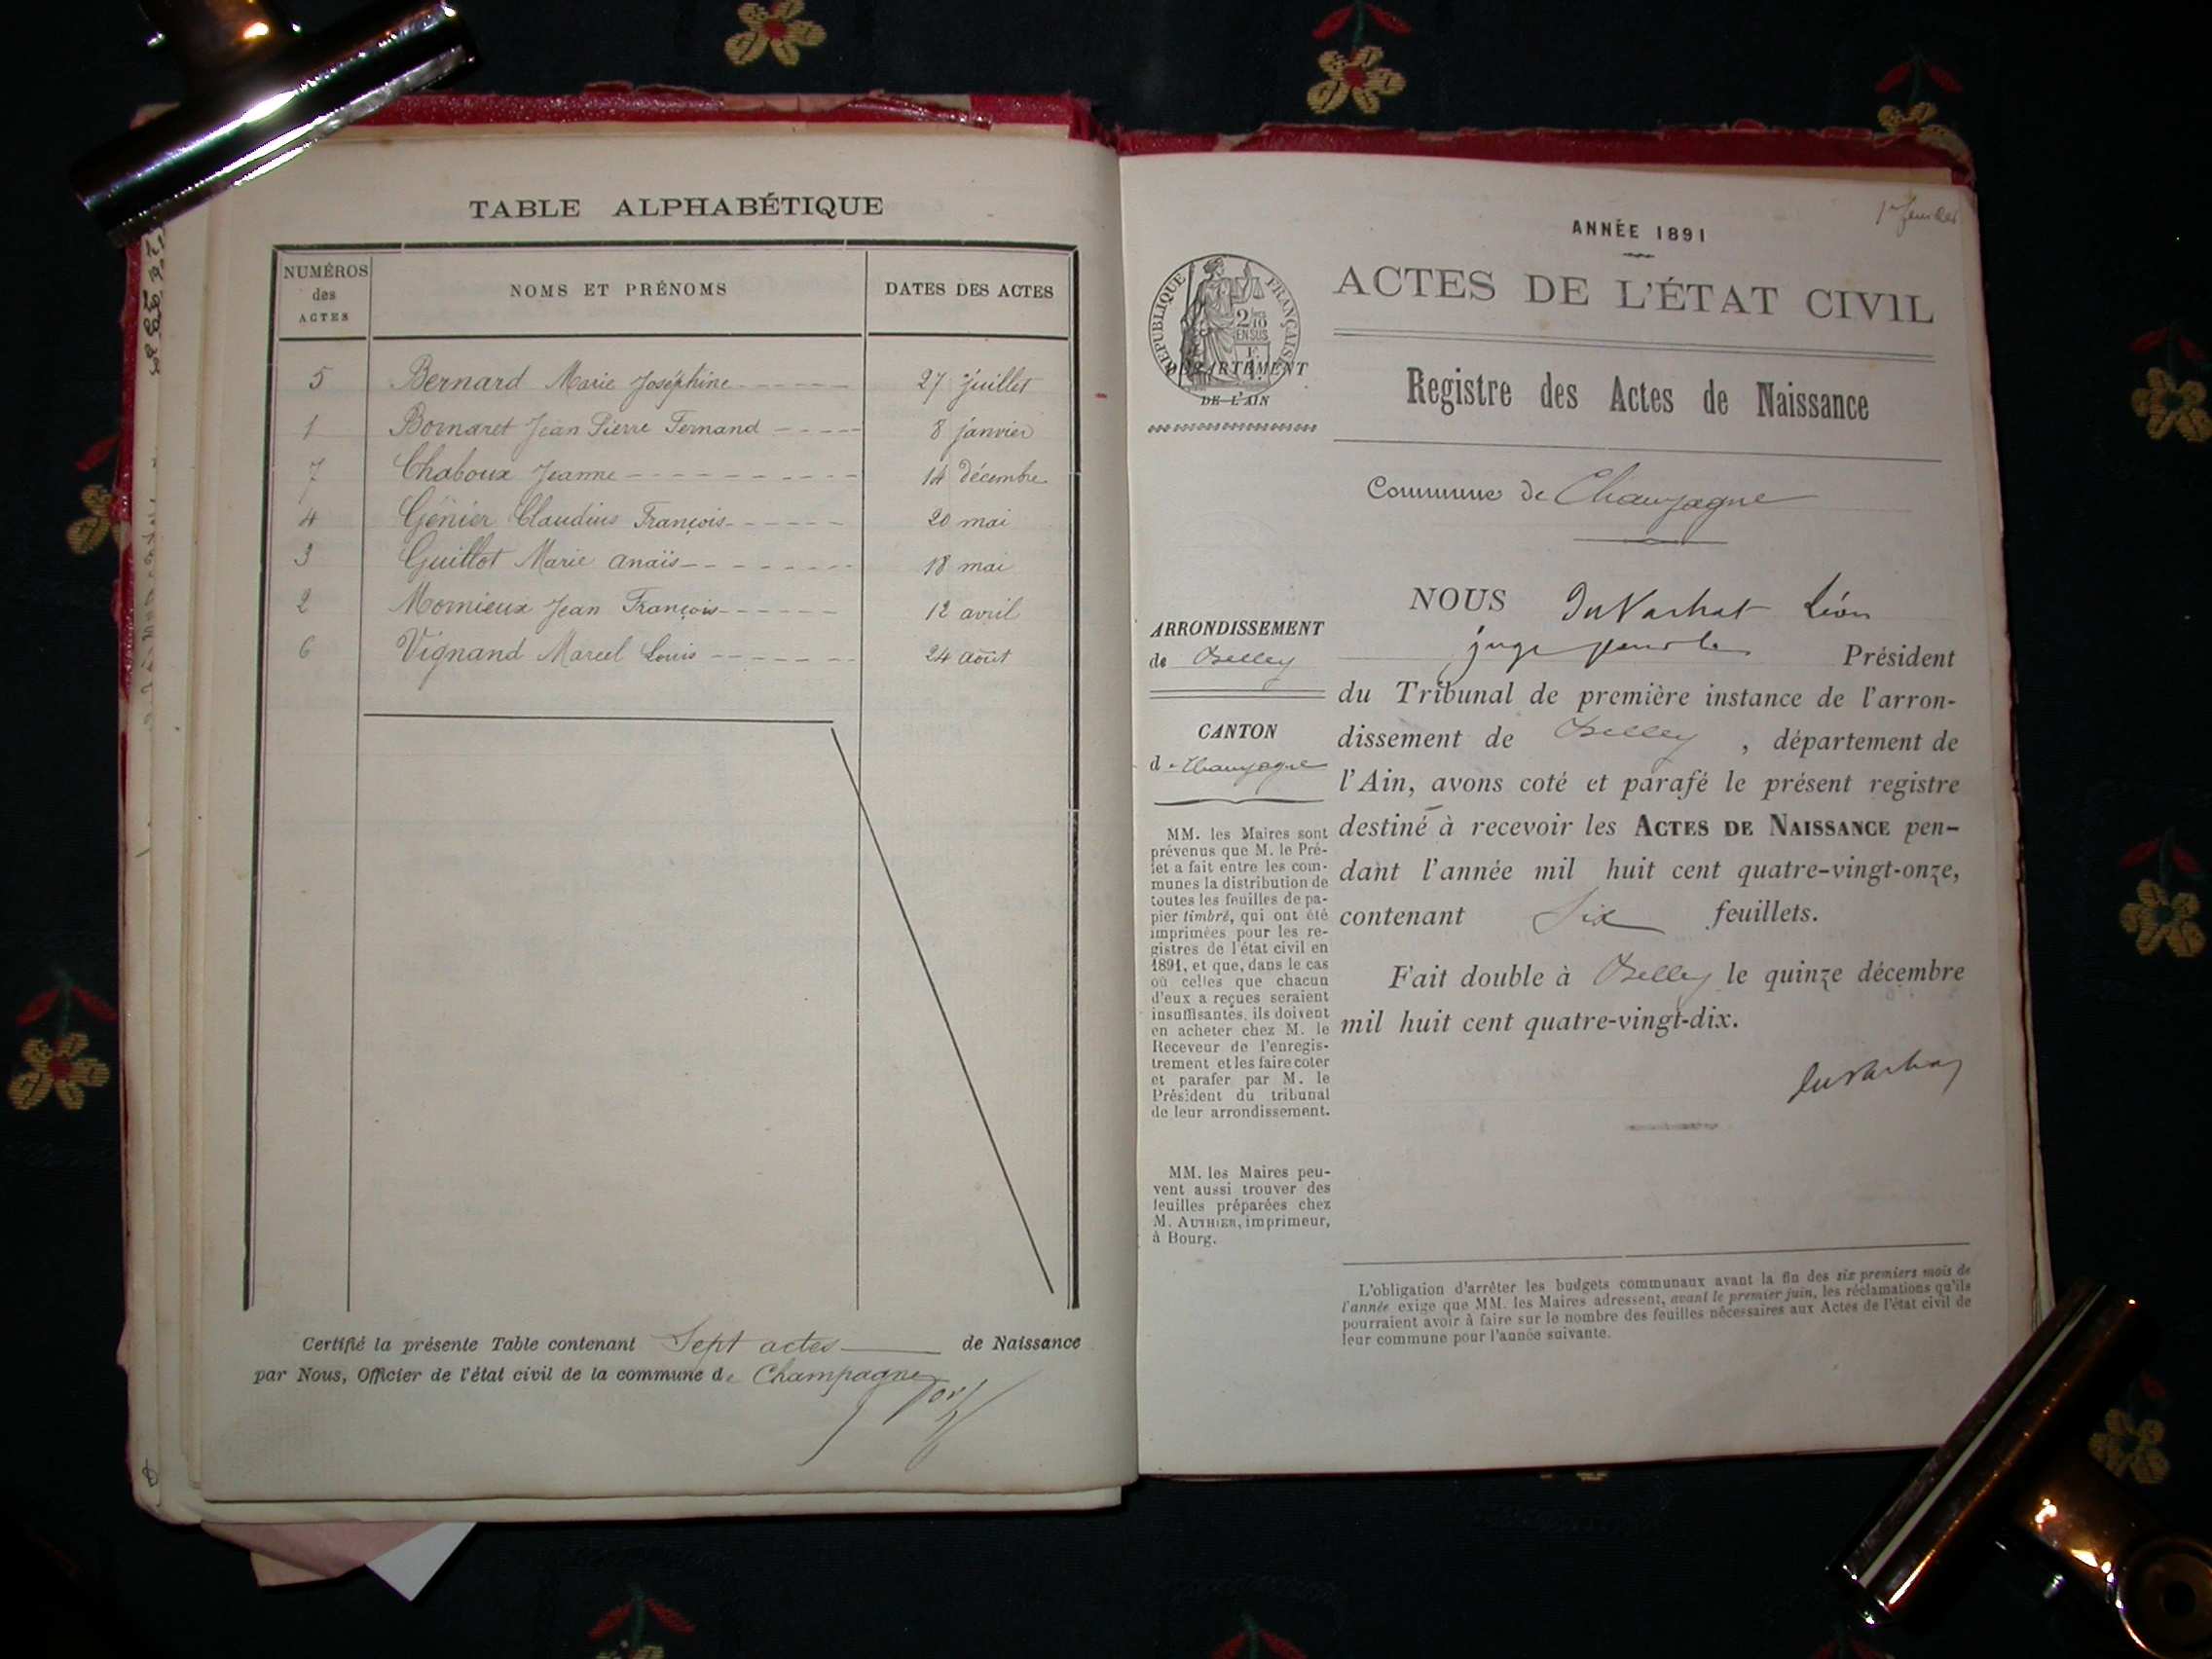 TABLE ALPHABÉTIQUE
NUMÉROS
des
ACTES
NOMS ET PRÉNOMS
DATES DES ACTES
5 Bernard Marie Joséphine 27 juillet
1 Bornaret Jean Pierre Fernand 8 janvier
7 Chaboux Jeanne 14 décembre
4 Génier Claudius François 20 mai
3 Guillot Marie anaïs 18 mai
2 Mornieux Jean François 12 avril
6 Vignand Marcel Louis 24 août
Certifié la présente Table contenant Sept actes de Naissance
par Nous, Officier de l'état civil de la commune de Champagne
1er feuillet
ANNÉE 1891
ACTES DE L'ÉTAT CIVIL
RÉPUBLIQUE FRANÇAISE
2/10
EN SUS
DÉPARTEMENT
DE L'AIN
Registre des Actes de Naissance
Commune de Champagne
ARRONDISSEMENT
de Belley
CANTON
de Champagne
MM. les Maires sont
prévenus que M. le Pré-
fet a fait entre les com-
munes la distribution de
toutes les feuilles de pa-
pier timbré, qui ont été
imprimées pour les re-
gistres de l'état civil en
1891, et que, dans le cas
où celles que chacun
d'eux a reçues seraient
insuffisantes, ils doivent
en acheter chez M. le
Receveur de l'enregis-
trement et les faire coter
et parafer par M. le
Président du tribunal
de leur arrondissement.
MM. les Maires peu-
vent aussi trouver des
feuilles préparées chez
M. AUTHIER, imprimeur,
à Bourg.
NOUS Léon
juge pour le Président
du Tribunal de première instance de l'arron-
dissement de Belley , département de
l'Ain, avons coté et parafé le présent registre
destiné à recevoir les ACTES DE NAISSANCE pen-
dant l'année mil huit cent quatre-vingt-onze,
contenant Six feuillets.
Fait double à Belley le quinze décembre
mil huit cent quatre-vingt-dix.
L'obligation d'arrêter les budgets communaux avant la fin des six premiers mois de
l'année exige que MM. les Maires adressent, avant le premier juin, les réclamations qu'ils
pourraient avoir à faire sur le nombre des feuilles nécessaires aux Actes de l'état civil de
leur commune pour l'année suivante.